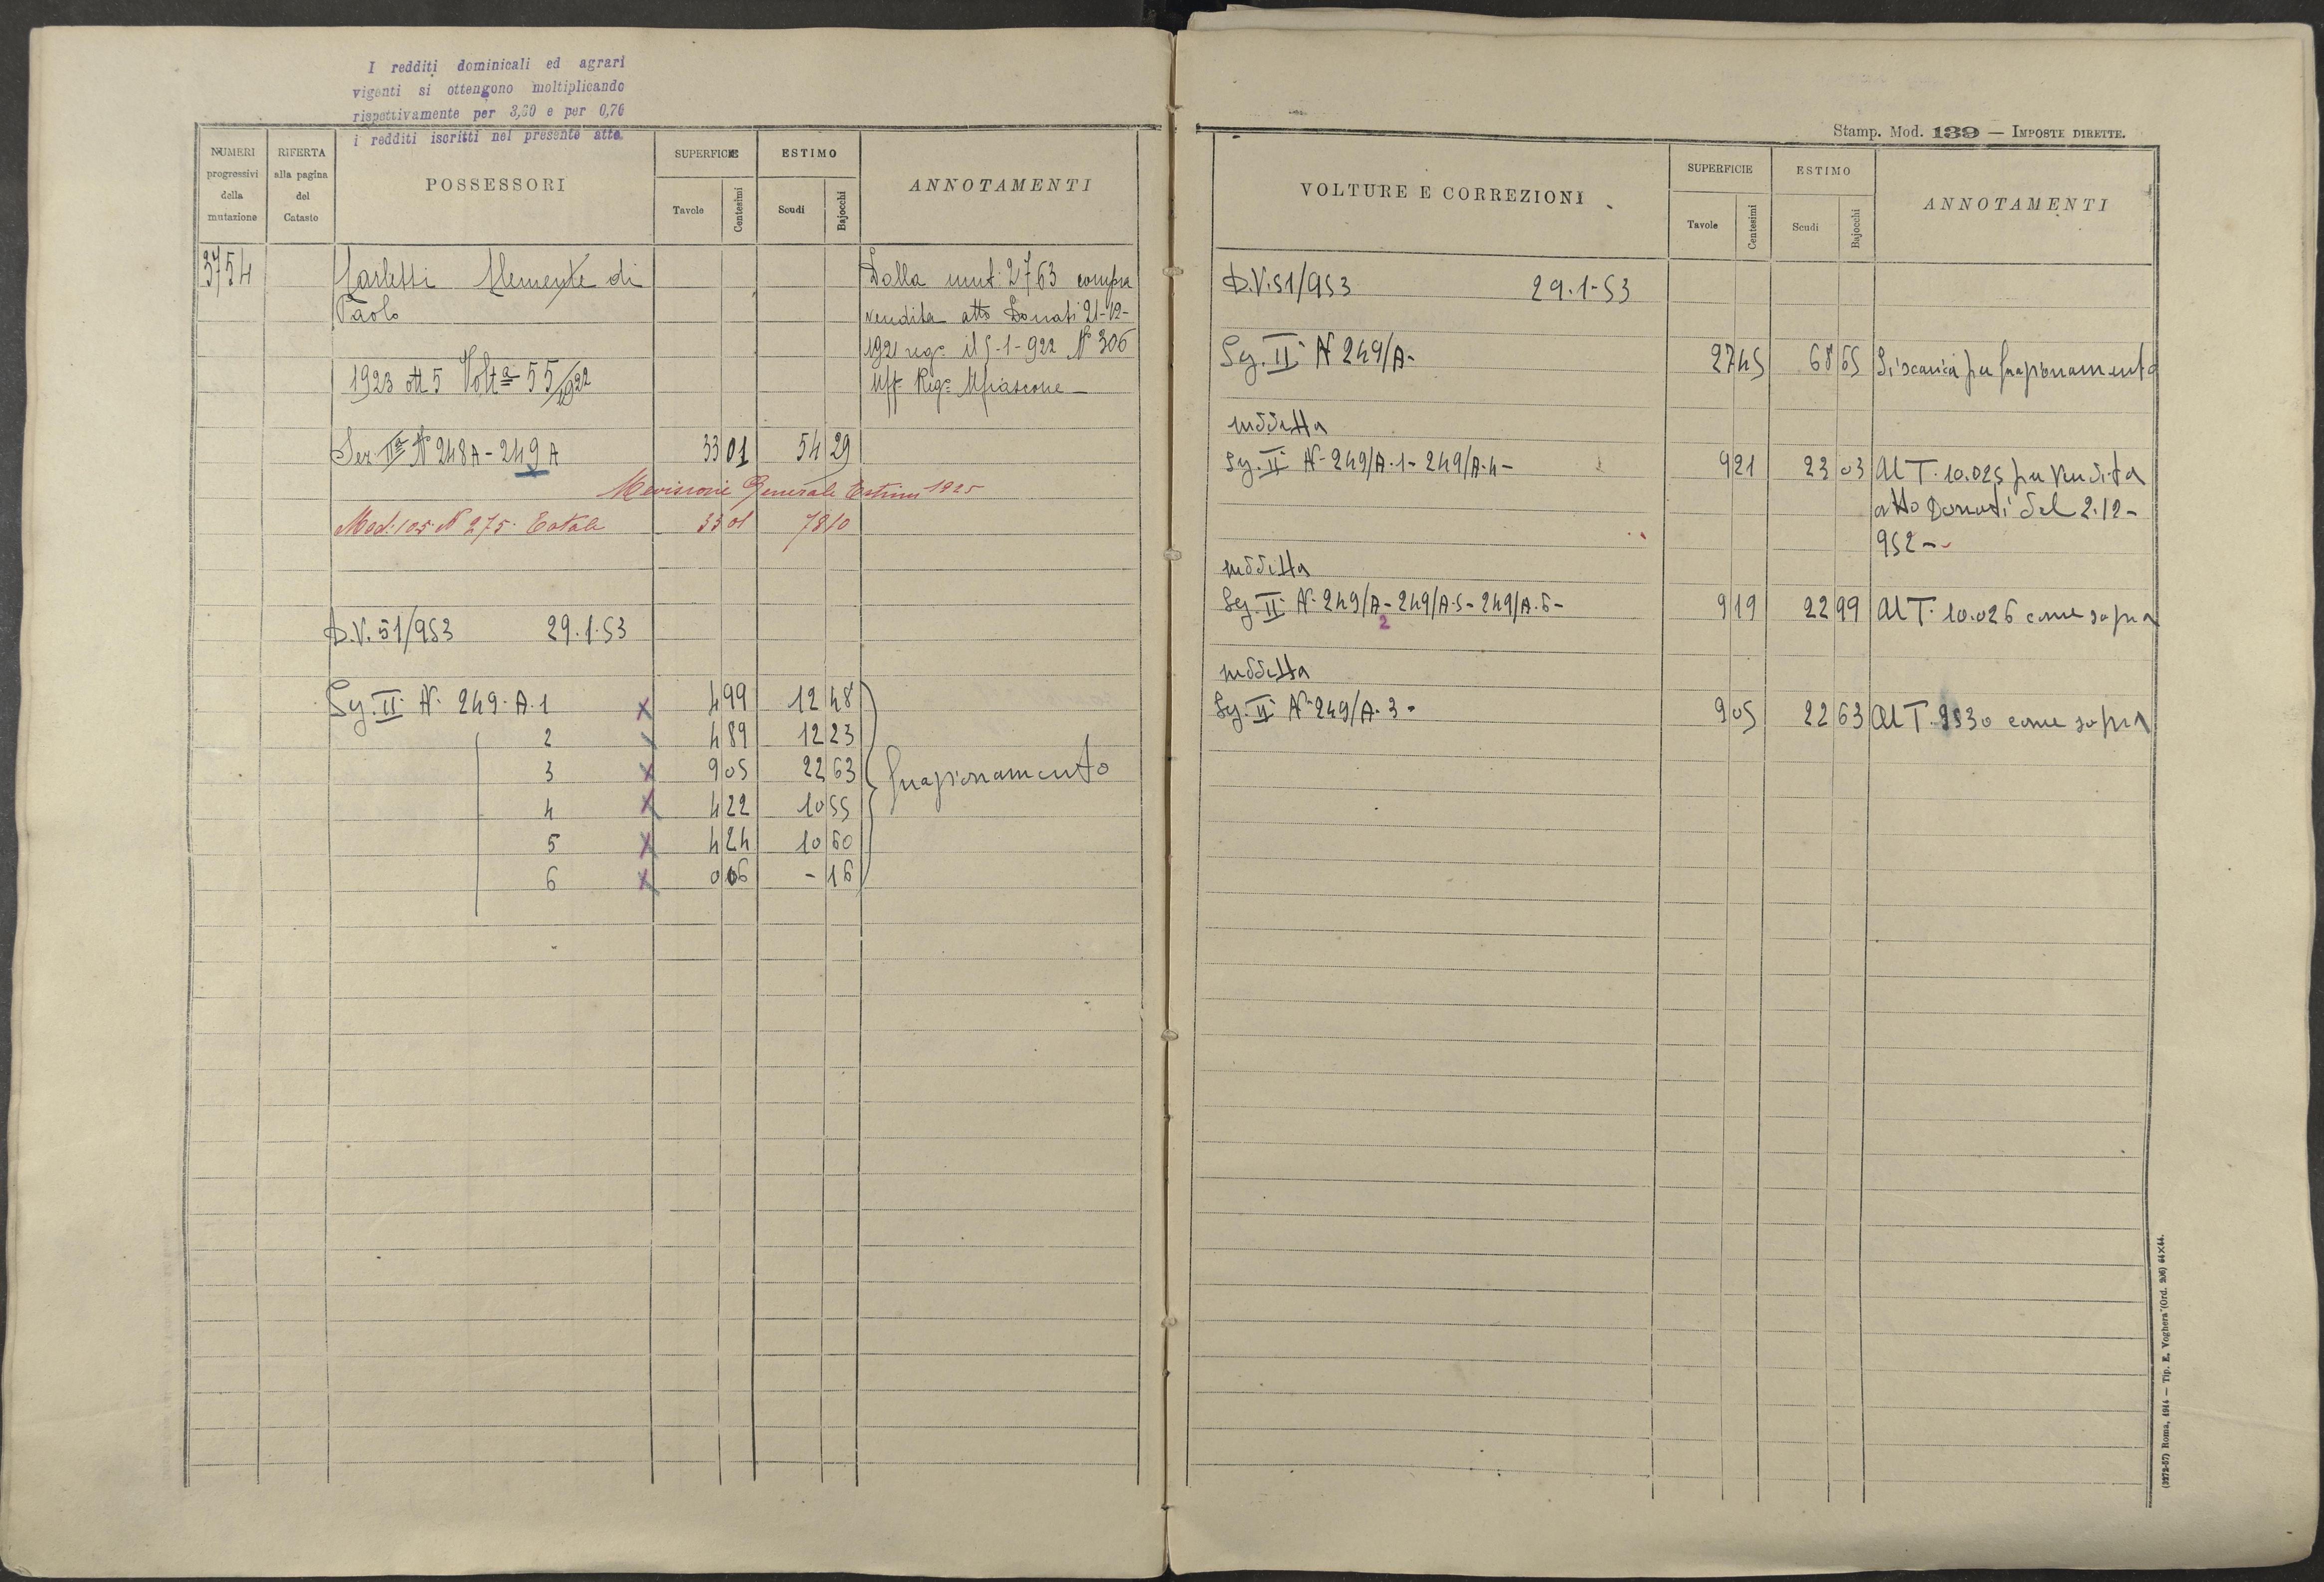 I redditi dominicali ed agrari
vigenti si ottengono moltiplicando
rispettivamente per 3,60 e per 0,76
i redditi iscritti nel presente atto.
NUMERI progressivi della mutazione
RIFERTA alla pagina del Catasto
POSSESSORI
SUPERFICIE
Tavole Centesimi
ESTIMO
Scudi Bajocchi
ANNOTAMENTI
3754 Carletti Clemente di Dalla mut. 2763 compra
Paolo vendita atto Donati 21-12-
1921 reg. il 5-1-922 N° 306
1923 ott 5 Volta 55/922 Uff. Reg.
Sez. IIa N 248A - 249A 33 01 54 29
Revisione Generale Estimi 1925
Mod. 105 N 275. Totale 33 01 78 10
D.V. 51/953 29.1.53
Sez. II. N. 249. A. 1 X 4 99 12 48
2 4 89 12 23
3 X 9 05 22 63 frazionamento
4 X 4 22 10 55
5 X 4 24 10 60
6 X 0 06 - 16
Stamp. Mod. 139 — IMPOSTE DIRETTE.
VOLTURE E CORREZIONI
SUPERFICIE
Tavole Centesimi
ESTIMO
Scudi Bajocchi
ANNOTAMENTI
D.V. 51/953 29.1-53
Sez. II. N 249/A - 27 45 68 65 Si scarica per frazionamento
suddetta
Sez. II. N - 249/A.1 - 249/A.4 - 9 21 23 03 Al T. 10.025 per vendita
atto Donati del 2.12-
952 -
suddetta
Sez. II. N. 249/A - 249/A.5 - 249/A.6 - 9 19 22 99 Al T. 10.026 come sopra
2
suddetta
Sez. II. N. 249/A. 3 - 9 05 22 63 Al T. 9530 come sopra
(3272-57) Roma, 1914 — Tip. E. Voghera (Ord. 206) 44×44.